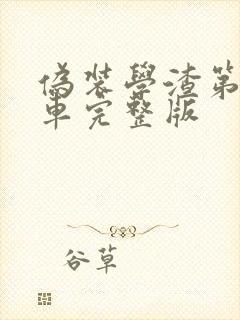 偽裝學渣第
車完整版
谷草